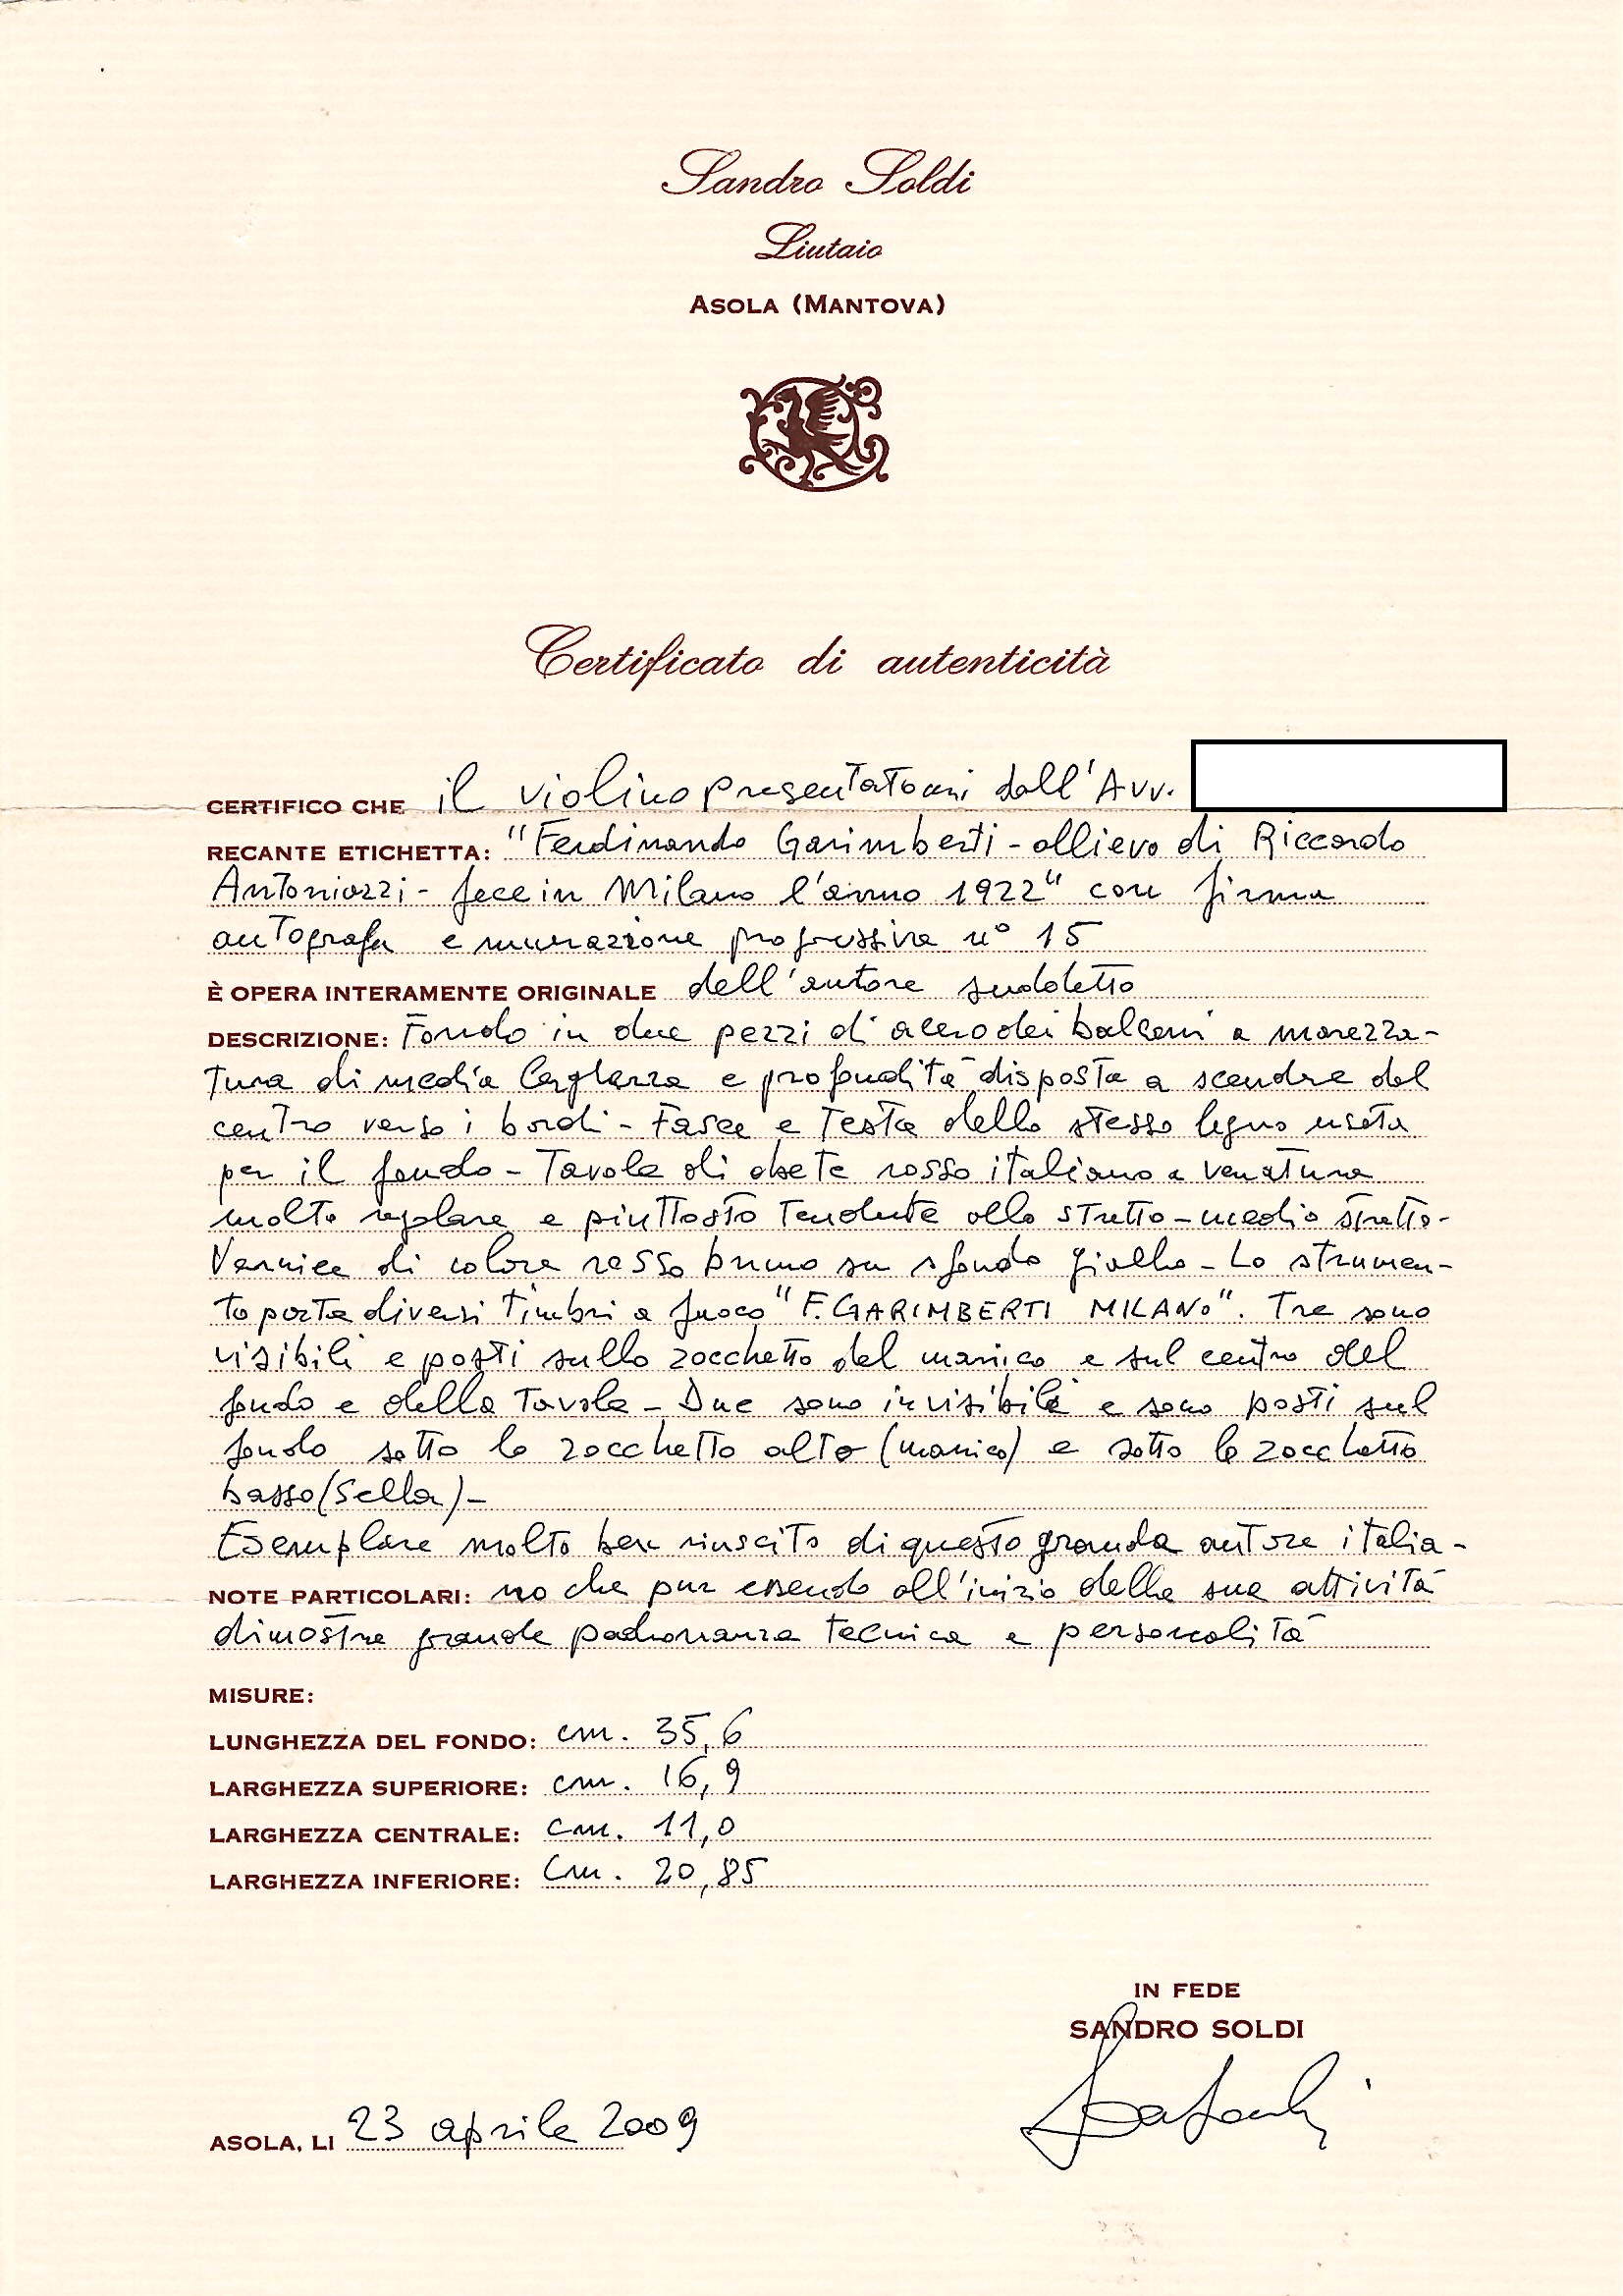 Sandro Soldi
Liutaio
ASOLA (MANTOVA)
Certificato di autenticità
CERTIFICO CHE il violino presentatomi dall'Avv.
RECANTE ETICHETTA: "Ferdinando Garimberti - allievo di Riccardo
Antoniazzi - fece in Milano l'anno 1922" con firma
autografa e numerazione progressiva n° 15
È OPERA INTERAMENTE ORIGINALE dell'autore suddetto
DESCRIZIONE: Fondo in due pezzi di acero dei balcani a marezza-
tura di media larghezza e profondità disposta a scendere dal
centro verso i bordi - Fasce e Testa dello stesso legno usato
per il fondo - Tavola di abete rosso italiano a venatura
molto regolare e piuttosto Tendente allo stretto - medio stretto -
Vernice di colore rosso bruno su sfondo giallo - Lo strumen-
to porta diversi Timbri a fuoco "F. GARIMBERTI MILANO". Tre sono
visibili e posti sullo zocchetto del manico e sul centro del
fondo e della Tavola - Due sono invisibili e sono posti sul
fondo sotto lo zocchetto alto (manico) e sotto lo zocchetto
basso (Sella) -
Esemplare molto ben riuscito di questo grande autore italia-
NOTE PARTICOLARI: no che pur essendo all'inizio della sua attività
dimostra grande padronanza tecnica e personalità
MISURE:
LUNGHEZZA DEL FONDO: cm. 35,6
LARGHEZZA SUPERIORE: cm. 16,9
LARGHEZZA CENTRALE: cm. 11,0
LARGHEZZA INFERIORE: cm. 20,85
IN FEDE
SANDRO SOLDI
ASOLA, LI 23 aprile 2009